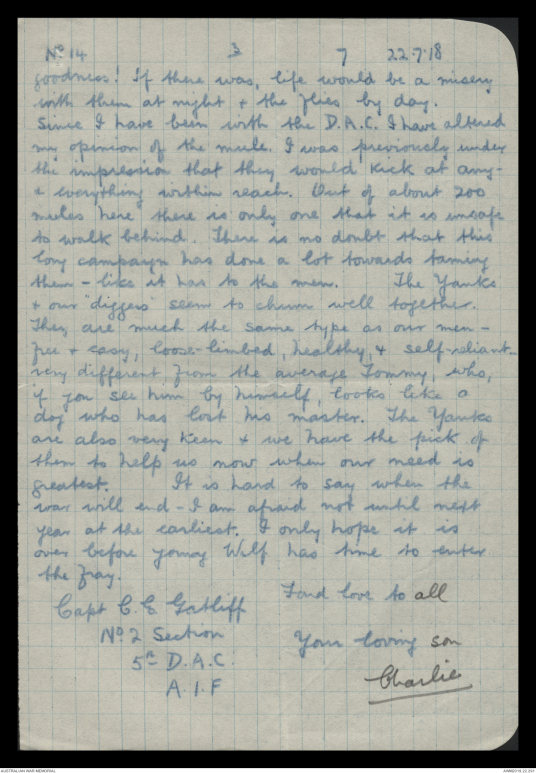 No 14 3 7 22.7.18
goodness! If there was, life would be a misery
with them at night & the flies by day.
Since I have been with the D.A.C. I have altered
my opinion of the mule. I was previously under
the impression that they would kick at any-
& everything within reach. Out of about 200
mules here there is only one that it is unsafe
to walk behind. There is no doubt that this
long campaign has done a lot towards taming
them - like it has to the men. The Yanks
& our "diggers" seem to chum well together.
They are much the same type as our men -
free & easy, loose-limbed, healthy, & self-reliant -
very different from the average Tommy, who,
if you see him by himself, looks like a
dog who has lost his master. The Yanks
are also very keen & we have the pick of
them to help us now when our need is
greatest. It is hard to say when the
war will end - I am afraid not until next
year at the earliest. I only hope it is
over before young Wilf has time to enter
the fray.
Fond love to all
Capt C. E. Gatliff
No 2 Section
Your loving son
5th D.A.C.
A.I.F
Charlie
AUSTRALIAN WAR MEMORIAL